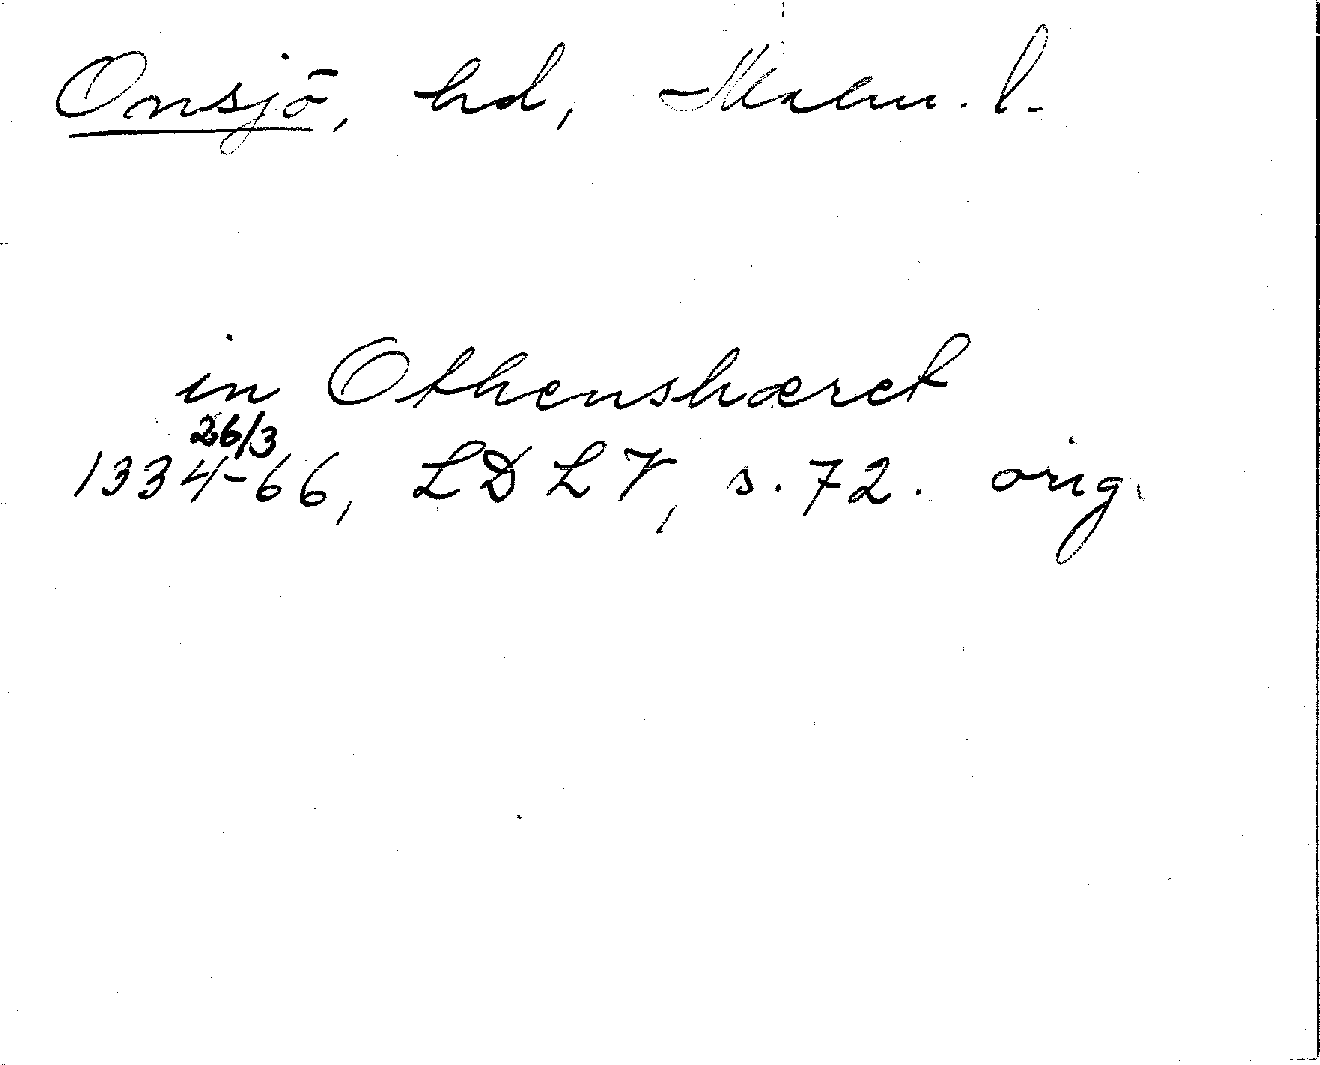 Onsjö, hd, Malm. l.
in Othenshæret
26/3
1334-66, LDLV, s. 72. orig.